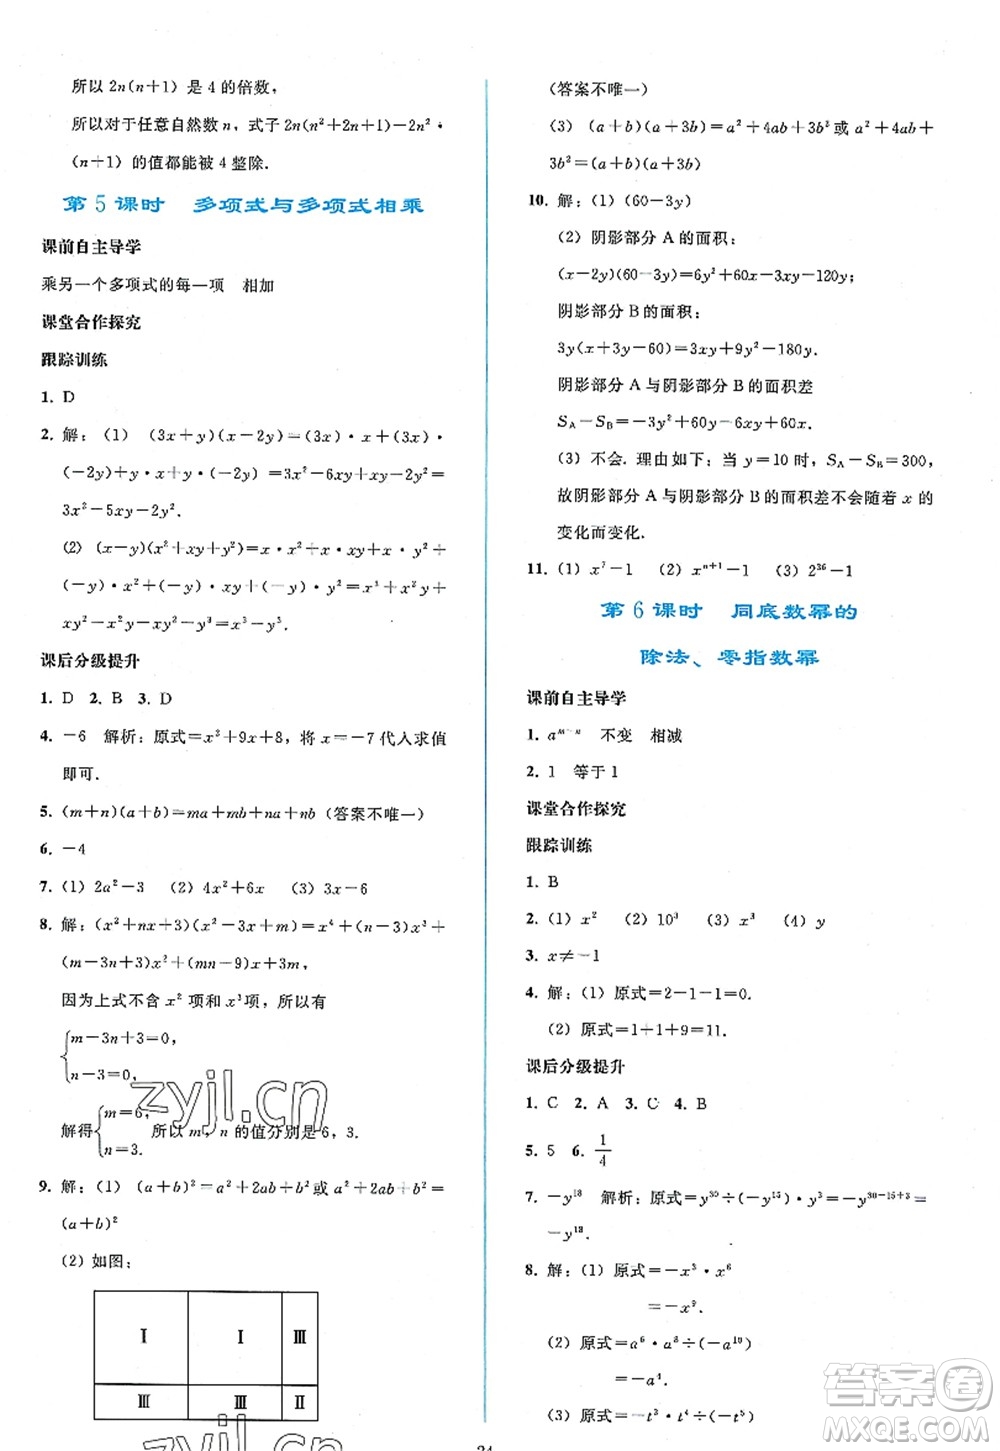 所以 2n(n+1) 是 4 的倍数,
所以对于任意自然数 n, 式子 2n(n²+2n+1)-2n²·
(n+1) 的值都能被 4 整除.
第 5 课时 多项式与多项式相乘
课前自主导学
乘另一个多项式的每一项 相加
课堂合作探究
跟踪训练
1. D
2. 解: (1) (3x+y)(x-2y)=3x·x+(3x)·
(-2y)+y·x+y·(-2y)=3x²-6xy+xy-2y²=
3x²-5xy-2y².
(2) (x-y)(x²+xy+y²)=x·x²+x·xy+x·y²+
(-y)·x²+(-y)·xy+(-y)·y²=x³+x²y+
xy²-x²y-xy²-y³=x³-y³.
课后分级提升
1. D 2. B 3. D
4. -6 解析: 原式=x²+9x+8, 将 x=-7代入求值
即可.
5. (m+n)(a+b)=ma+mb+na+nb (答案不唯一)
6. -4
7. (1) 2a²-3 (2) 4x²+6x (3) 3x-6
8. 解: (x²+nx+3)(x²-3x+m)=x⁴+(n-3)x³+
(m-3n+3)x²+(mn-9)x+3m,
因为上式不含 x² 项和 x³项, 所以有
{m-3n+3=0,
n-3=0,
解得{m=6,
n=3.
所以 m, n 的值分别是 6, 3.
9. 解: (1) (a+b)²=a²+2ab+b²或a²+2ab+b²=
(a+b)²
(2) 如图:
Ⅰ Ⅰ Ⅲ
Ⅲ Ⅲ Ⅱ
(答案不唯一)
(3) (a+b)(a+3b)=a²+4ab+3b²或 a²+4ab+
3b²=(a+b)(a+3b)
10. 解: (1) (60-3y)
(2) 阴影部分 A 的面积:
(x-2y)(60-3y)=6y²+60x-3xy-120y;
阴影部分 B 的面积:
3y(x+3y-60)=3xy+9y²-180y.
阴影部分 A 与阴影部分 B 的面积差
S_A-S_B=-3y²+60x-6xy+60y.
(3) 不会. 理由如下: 当 y=10 时, S_A-S_B=300,
故阴影部分 A 与阴影部分 B 的面积差不会随着 x 的
变化而变化.
11. (1) x⁷-1 (2) xⁿ⁺¹-1 (3) 2³⁶-1
第 6 课时 同底数幂的
除法、零指数幂
课前自主导学
1. aᵐ⁻ⁿ 不变 相减
2. 1 等于 1
课堂合作探究
跟踪训练
1. B
2. (1) x² (2) 10³ (3) x³ (4) y
3. x≠-1
4. 解: (1) 原式=2-1-1=0.
(2) 原式=1+1+9=11.
课后分级提升
1. C 2. A 3. C 4. B
5. 5 6. 1/4
7. -y¹⁸ 解析: 原式=y³⁰÷(-y¹⁵)·y³=-y³⁰⁻¹⁵⁺³=
-y¹⁸.
8. 解: (1) 原式=-x³·x⁶
=-x⁹.
(2) 原式=a⁶·a⁸÷(-a¹⁰)
=-a⁴.
(3) 原式=-t³·t⁴÷(-t⁵)
zyjl.cn
zyjl.cn
答案圈
MXQE.COM